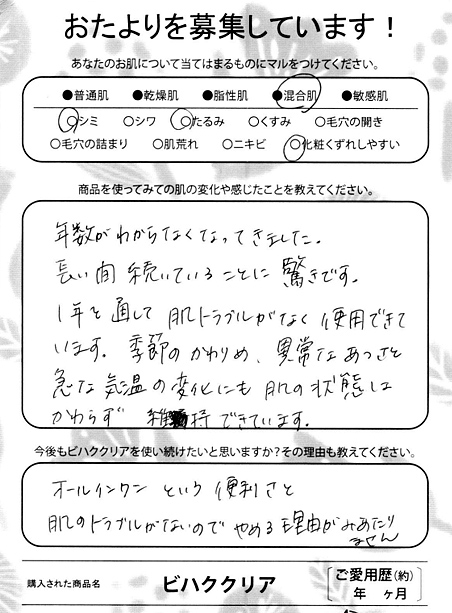 おたよりを募集しています！
あなたのお肌について当てはまるものにマルをつけてください。
●普通肌 ●乾燥肌 ●脂性肌 ●混合肌 ●敏感肌
○シミ ○シワ ○たるみ ○くすみ ○毛穴の開き
○毛穴の詰まり ○肌荒れ ○ニキビ ○化粧くずれしやすい
商品を使ってみての肌の変化や感じたことを教えてください。
年数がわからなくなってきました。
長い間続いていることに驚きです。
1年を通して肌トラブルがなく使用できて
います。季節のかわりめ、異常なあつさと
急な気温の変化にも肌の状態は
かわらず維持できています。
今後もビハククリアを使い続けたいと思いますか？その理由も教えてください。
オールインワンという便利さと
肌のトラブルがないのでやめる理由がみあたり
ません
購入された商品名 ビハククリア
ご愛用歴(約)
年 ヶ月